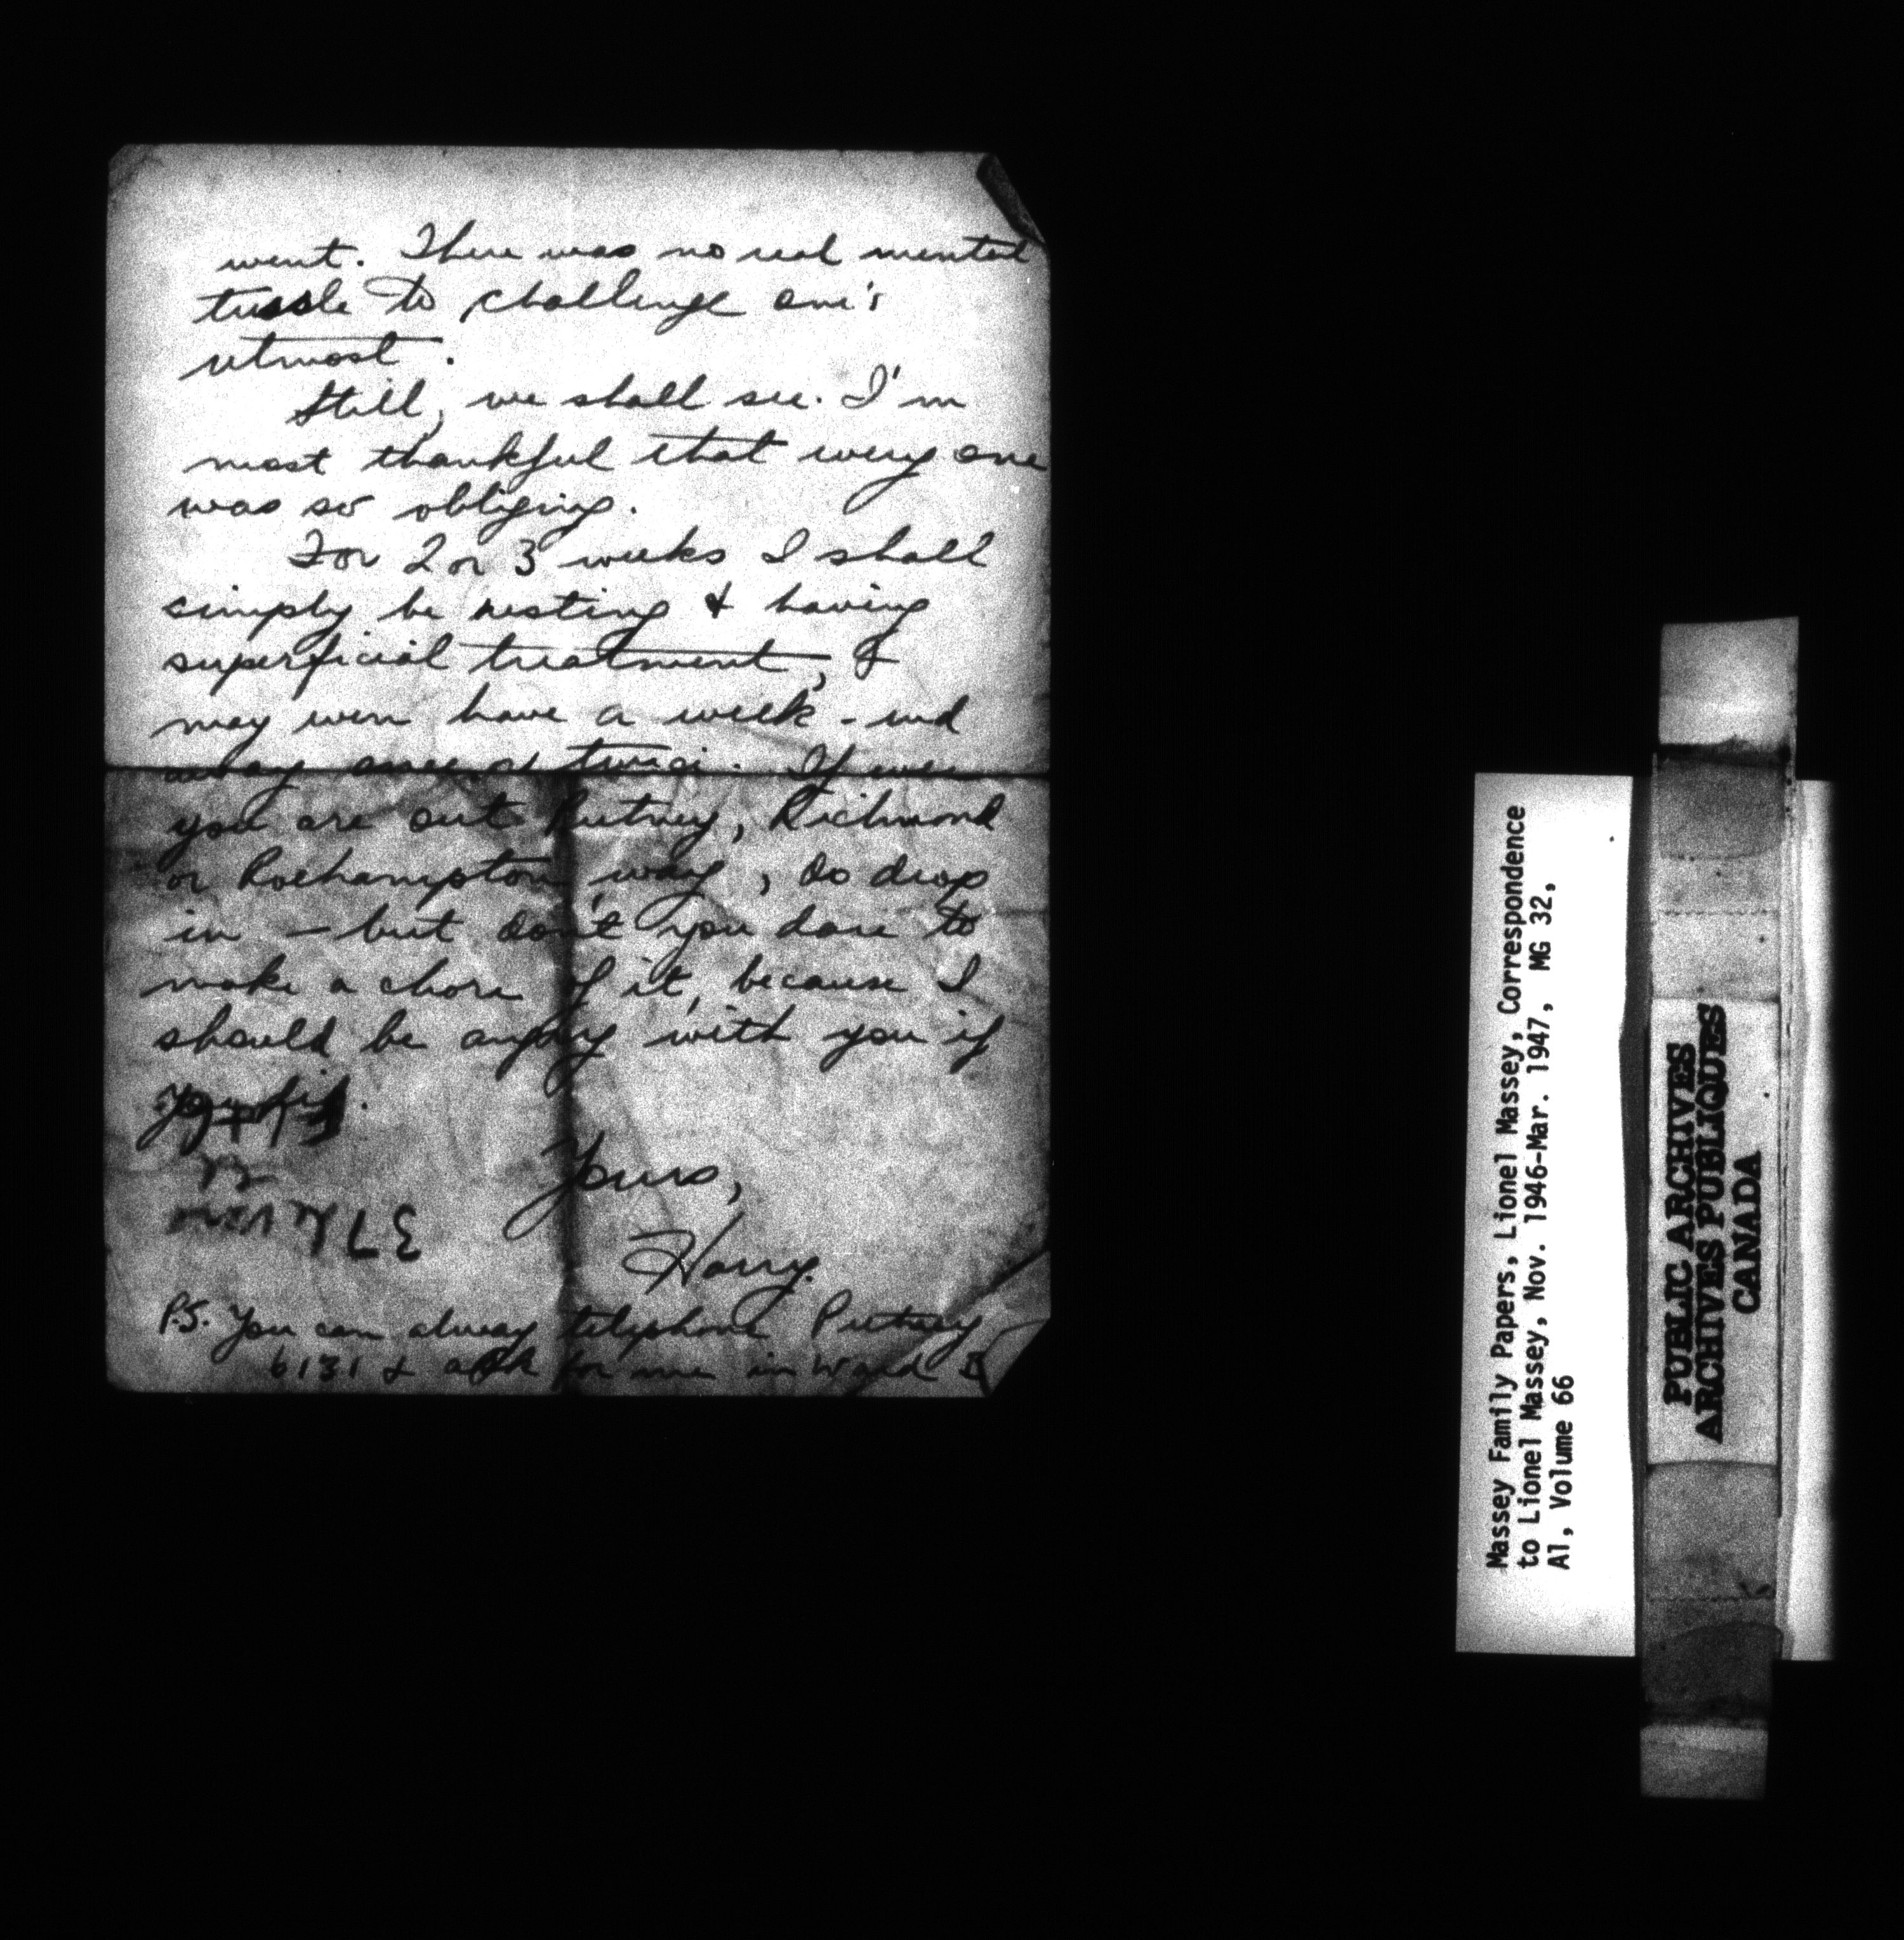 went. There was no real mental
tussle to challenge one's
utmost.
Still, we shall see. I'm
most thankful that every one
was so obliging.
For 2 or 3 weeks I shall
simply be resting & having
superficial treatment, &
may even have a week-end
away once or twice. If ever
you are out Putney, Richmond
or Roehampton way, do drop
in – but don't you dare to
make a chore of it, because I
should be angry with you if
you did.
Yours,
Harry.
37
P.S. You can always telephone Putney
6131 & ask for me in Ward
Massey Family Papers, Lionel Massey, Correspondence
to Lionel Massey, Nov. 1946-Mar. 1947, MG 32,
A1, Volume 66
PUBLIC ARCHIVES
ARCHIVES PUBLIQUES
CANADA